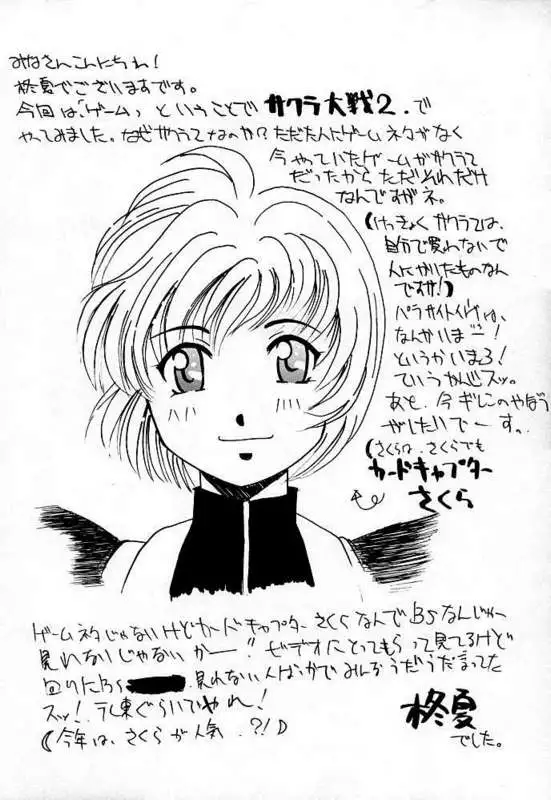 みなさんこんにちわ!
柊夏でございますです。
今回は、「ゲーム」、ということで サクラ大戦2. で
やってみました。なぜサクラ なのか?ただたんにゲームネタがなく
今やっていたゲームがサクラ
だったから ただそれだけ
なんですがネ。
(けっきょく サクラ は、
自分で買わないで
人にかいたものなん
ですが!)
パラサイト は、
なんかいまー!
というかいまろ!
ていうかんじスッ。
あと、今 のやぼう
がしたいでーす。
(さくらは、さくらでも
カードキャプター
さくら
ゲームネタじゃないけどカードキャプター さくらなんで BSなんじゃー
見れないじゃないかー!! ビデオにとってもらって見てるけど
回りにBS 見れない人ばっかでみんなうだうだまってた
スッ! テレ東ぐらいでやれ!
(今年は、さくらが人気 ?!)
柊夏
でした。